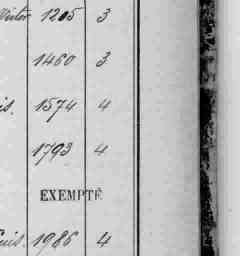 1205 3
1460 3
is. 1574 4
1793 4
EXEMPTÉ
uis. 1986 4